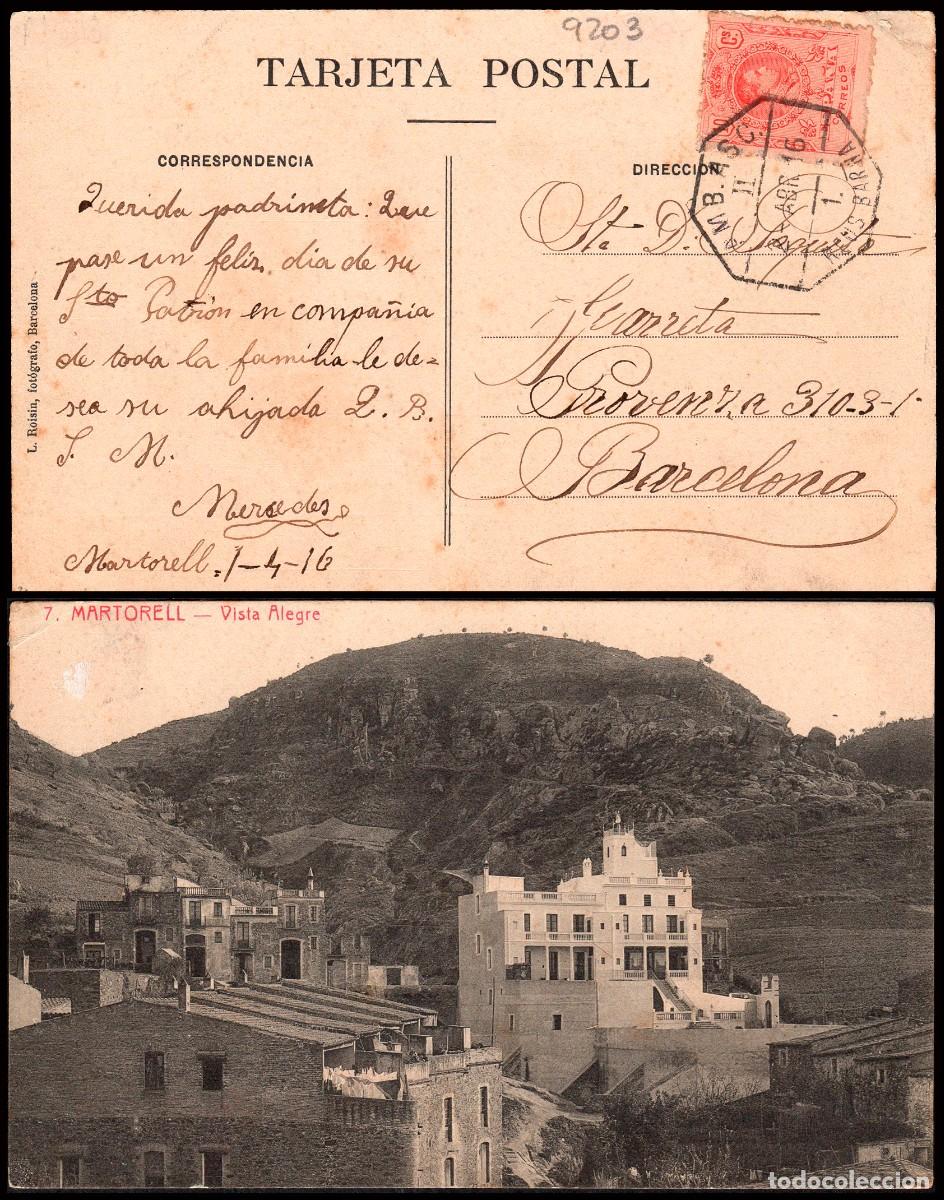 9203
TARJETA POSTAL
CORREOS
AMB. ASC.
II
2 ABR 16
1.
REUS BARNA
CORRESPONDENCIA
Querida padrineta: Que
pase un feliz dia de su
Sto Patrón en compañia
de toda la familia le de=
sea su ahijada Q. B.
S. M.
Mercedes
Martorell, 1-4-16
L. Roisin, fotógrafo, Barcelona
DIRECCIÓN
Sta. D.
Garreta
Provenza 310-3-1-
Barcelona
7. MARTORELL — Vista Alegre
todocoleccion